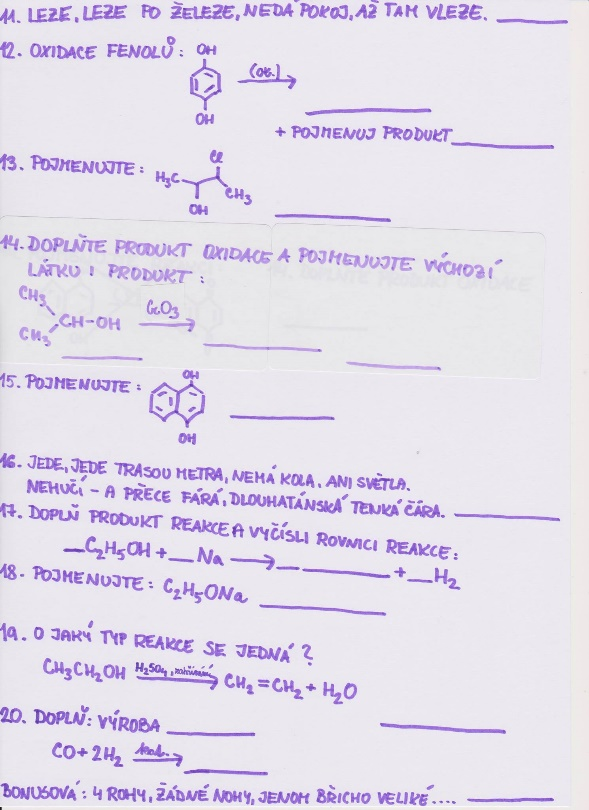 11. LEZE, LEZE PO ŽELEZE, NEDÁ POKOJ, AŽ TAM VLEZE.
12. OXIDACE FENOLŮ:
OH
(ox.)
OH
+ POJMENUJ PRODUKT
13. POJMENUJTE:
Cl
H3C
CH3
OH
14. DOPLŇTE PRODUKT OXIDACE A POJMENUJTE VÝCHOZÍ
LÁTKU I PRODUKT:
CH3
CH-OH CrO3
CH3
15. POJMENUJTE:
OH
OH
16. JEDE, JEDE TRASOU METRA, NEMÁ KOLA, ANI SVĚTLA.
NEHUČÍ - A PŘECE FÁRÁ, DLOUHATÁNSKÁ TENKÁ ČÁRA.
17. DOPLŇ PRODUKT REAKCE A VYČÍSLI ROVNICI REAKCE:
C2H5OH + Na + H2
18. POJMENUJTE: C2H5ONa
19. O JAKÝ TYP REAKCE SE JEDNÁ?
CH3CH2OH H2SO4, zahřívání CH2=CH2 + H2O
20. DOPLŇ: VÝROBA
CO + 2H2 kat.
BONUSOVÁ: 4 ROHY, ŽÁDNÉ NOHY, JENOM BŘICHO VELIKÉ....